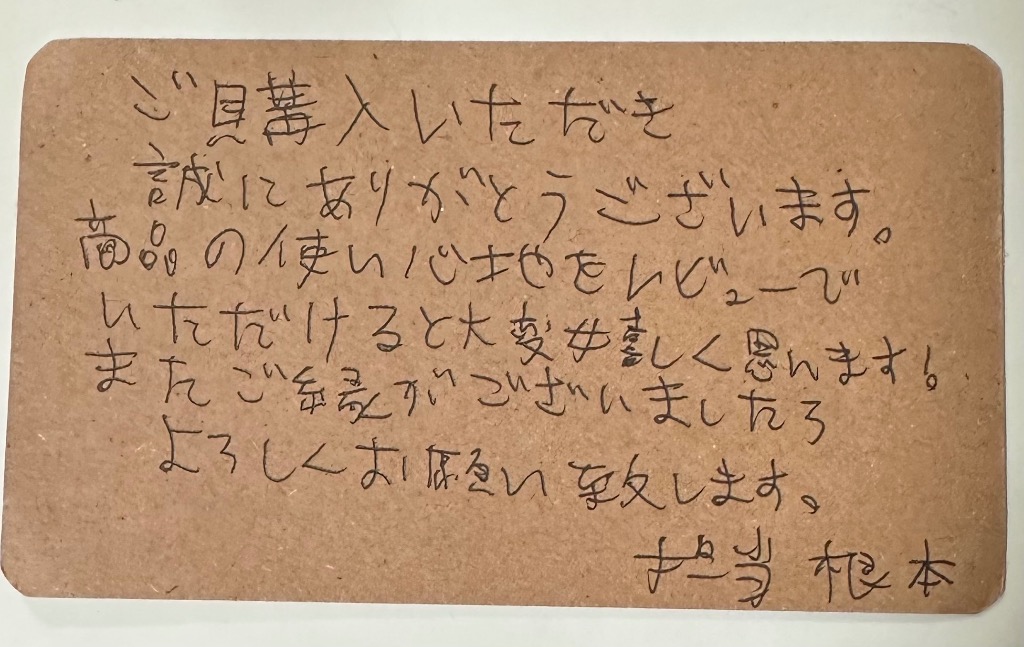 ご購入いただき
誠にありがとうございます。
商品の使い心地をレビューで
いただけると大変嬉しく思います!
またご縁がございましたら
よろしくお願い致します。
担当 根本